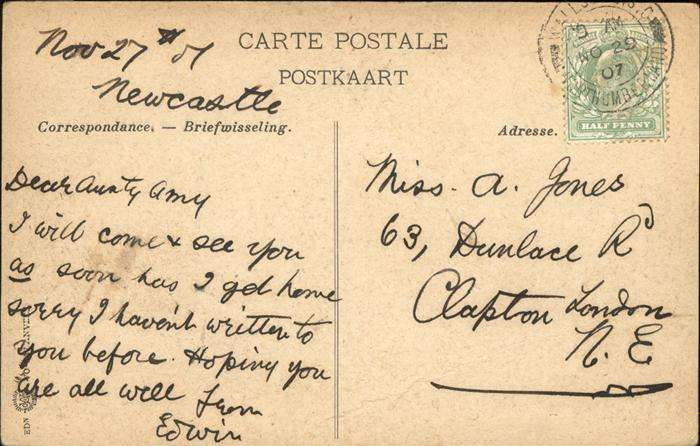 Nov 27th 07
Newcastle
CARTE POSTALE
POSTKAART
Correspondance. — Briefwisseling.
Adresse.
HALF PENNY
NO 29
07
Dear Aunty Amy
I will come & see you
as soon has I get home
sorry I havent written to
you before. Hoping you
are all well from
Edwin
Miss. A. Jones
63, Dunlace Rd
Clapton London
N. E